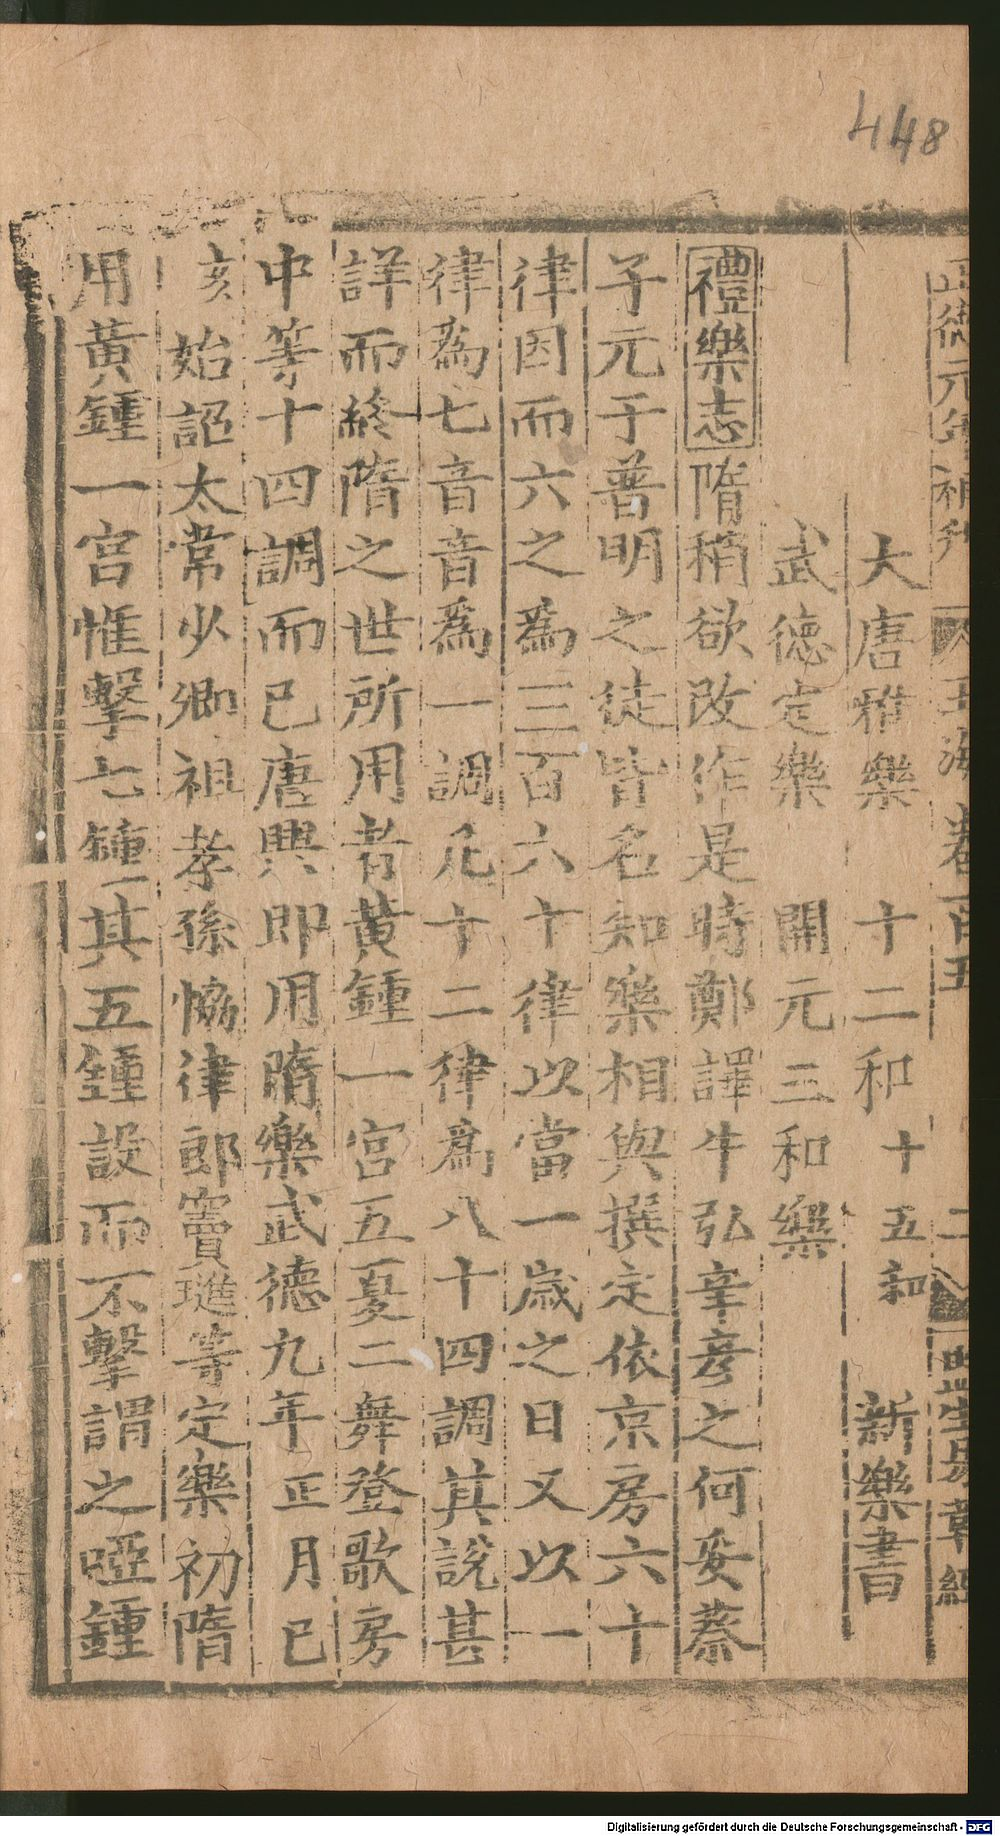 448
正德元年補刊 玉海卷一百五 二 監生易章經
大唐雅樂 十二和 十五和 新樂書
武德定樂 開元三和樂
禮樂志隋稍欲改作是時鄭譯牛弘辛彦之何妥蔡
子元于普明之徒皆名知樂相與撰定依京房六十
律因而六之爲三百六十律以當一歳之日又以一
律爲七音音爲一調凡十二律爲八十四調其說甚
詳而終隋之世所用者黄鍾一宫五夏二舞登歌房
中等十四調而已唐興即用隋樂武德九年正月已
亥始詔太常少卿祖孝孫恊律郎竇璡等定樂初隋
用黄鍾一宫惟擊七鍾其五鍾設而不擊謂之啞鍾
Digitalisierung gefördert durch die Deutsche Forschungsgemeinschaft - DFG